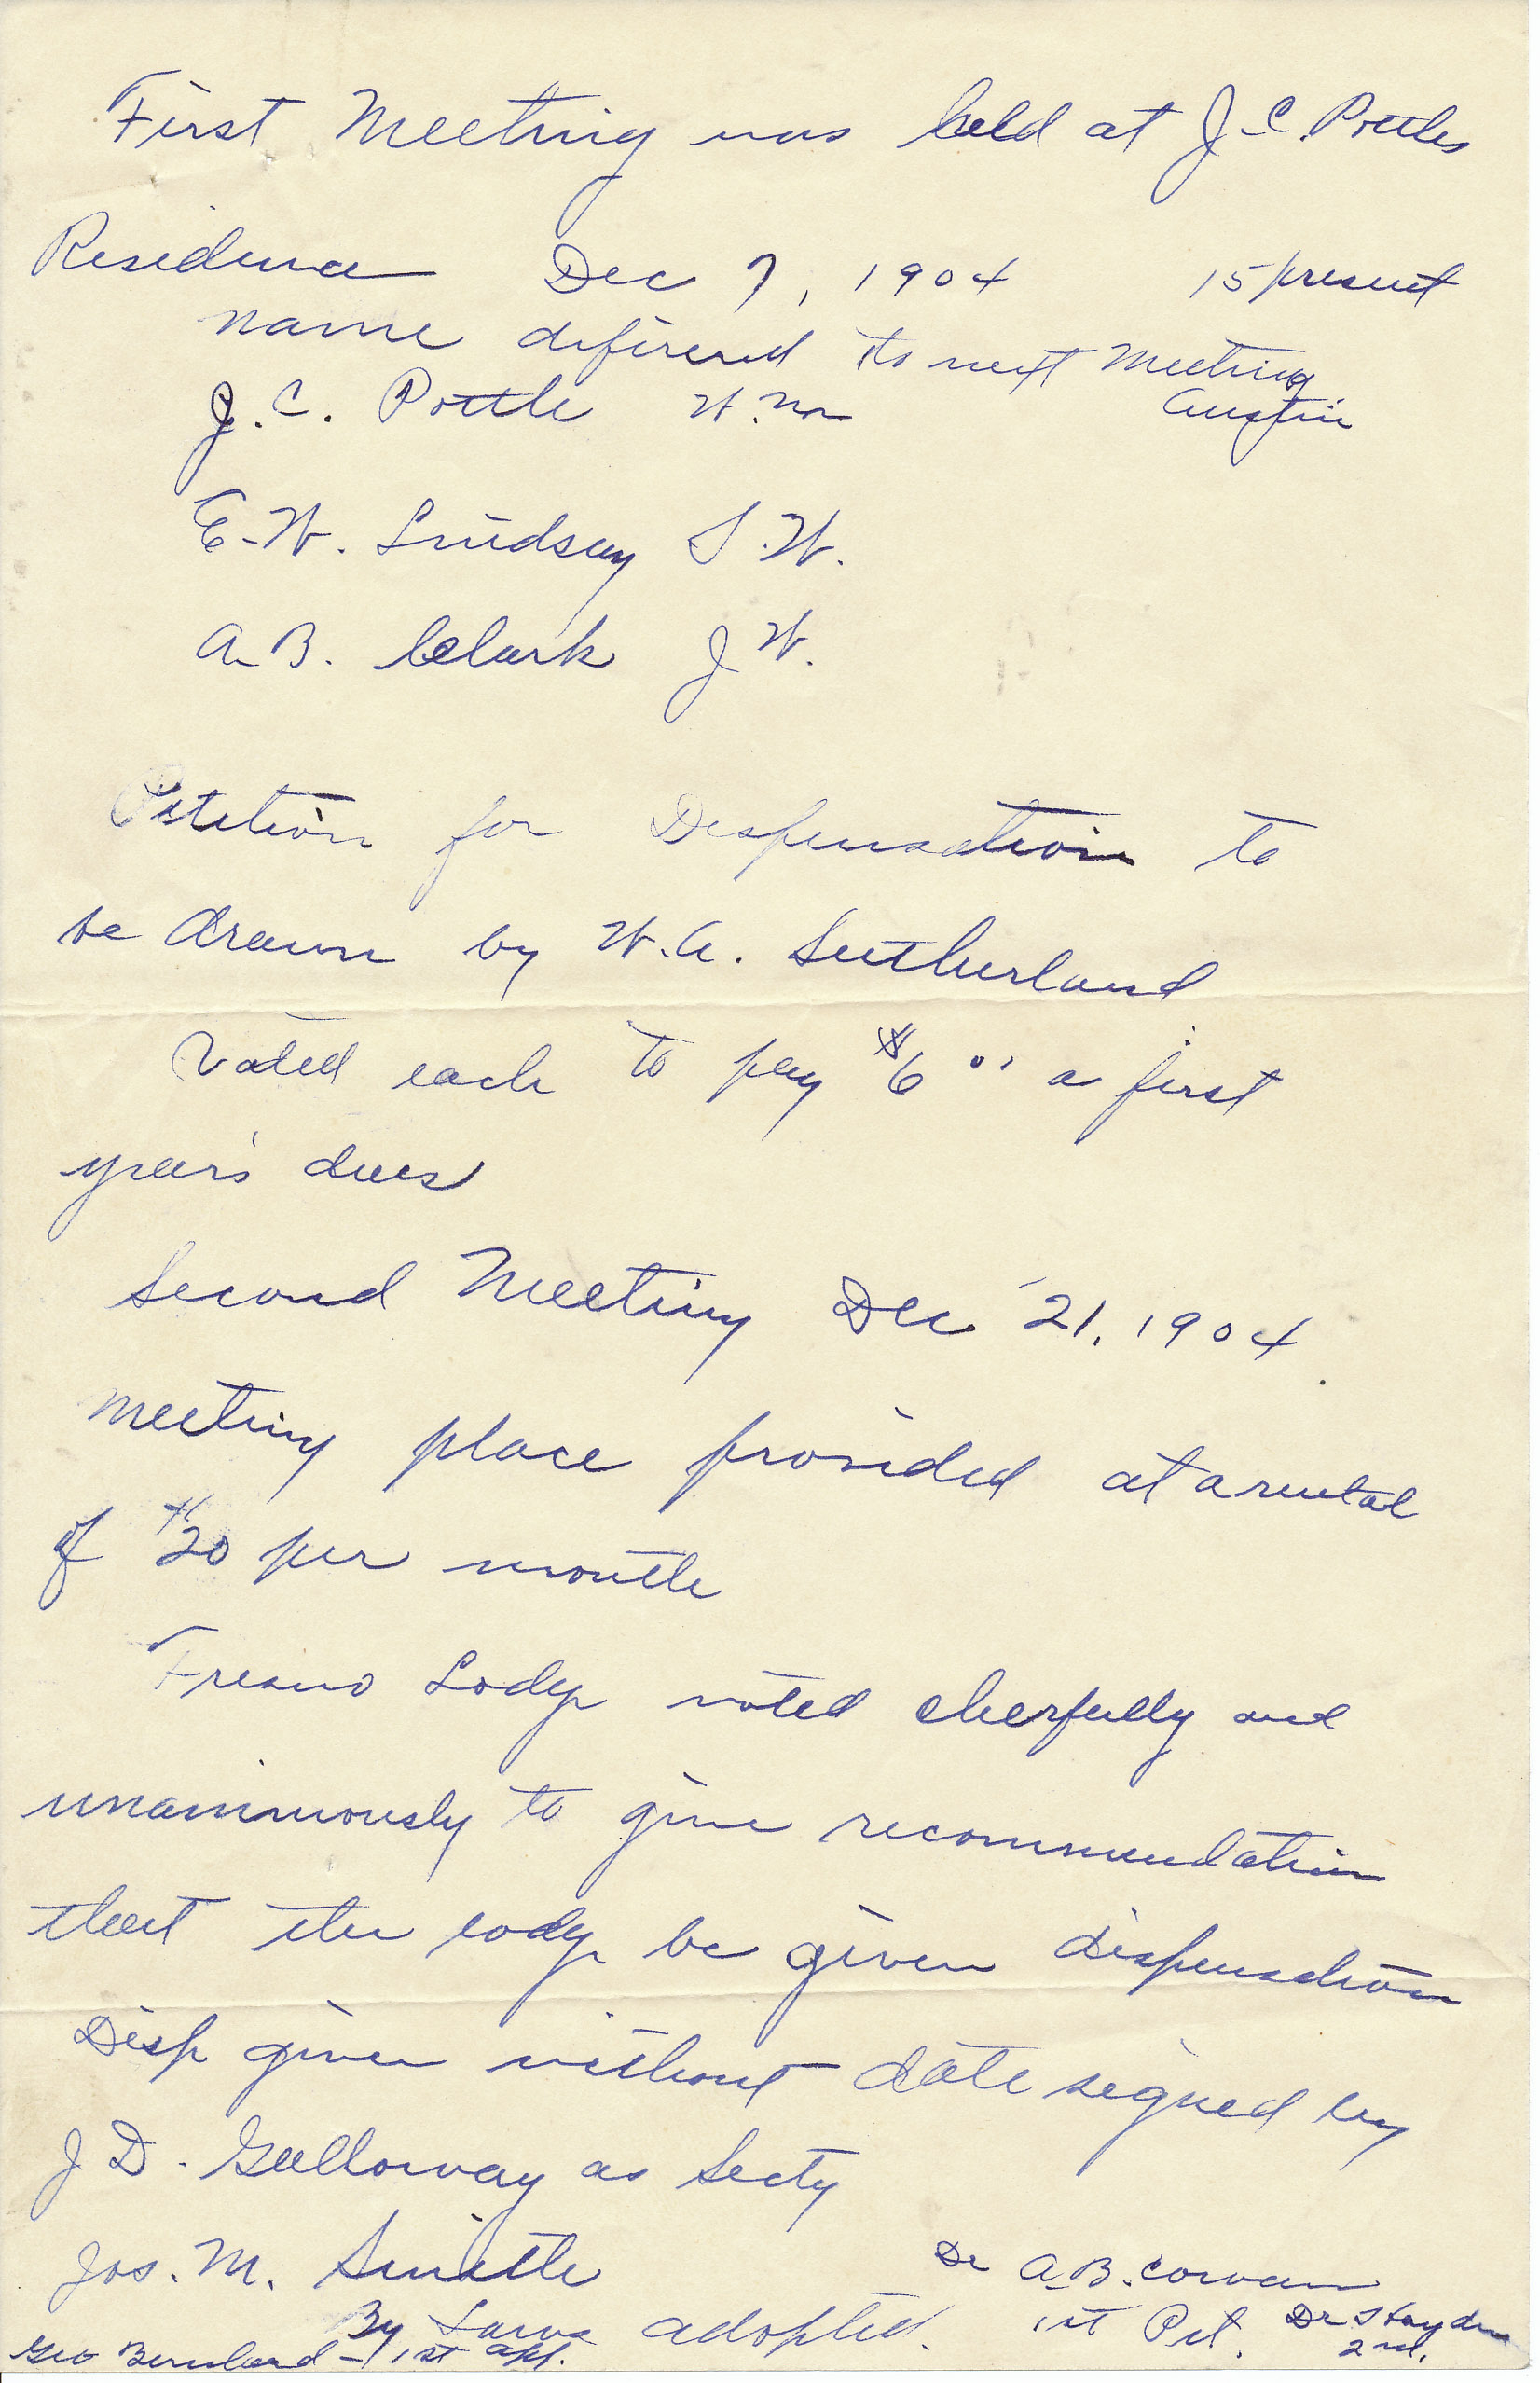 First Meeting was held at J. C. Pottles
Residence Dec 7, 1904 15 present
name defirered to next Meeting
Austin
J. C. Pottle W. M
E. W. Lindsay S. W.
A. B. Clark J W.
Petition for Dispensation to
be drawn by W. A. Sutherland
Voted each to pay $6 00 a first
year's dues
Second Meeting Dec 21, 1904.
Meeting place provided at a rental
of $20 per month
Fresno Lodge voted cheerfully and
unanimously to give recommendation
that the lodge be given dispensation
Disp given without date signed by
J D. Galloway as Secty
Jos. M. Smith
Dr A. B. Cowan
By Laws adopted. 1st Pet. Dr Hayden
2nd.
Geo Bernhard - 1st app.